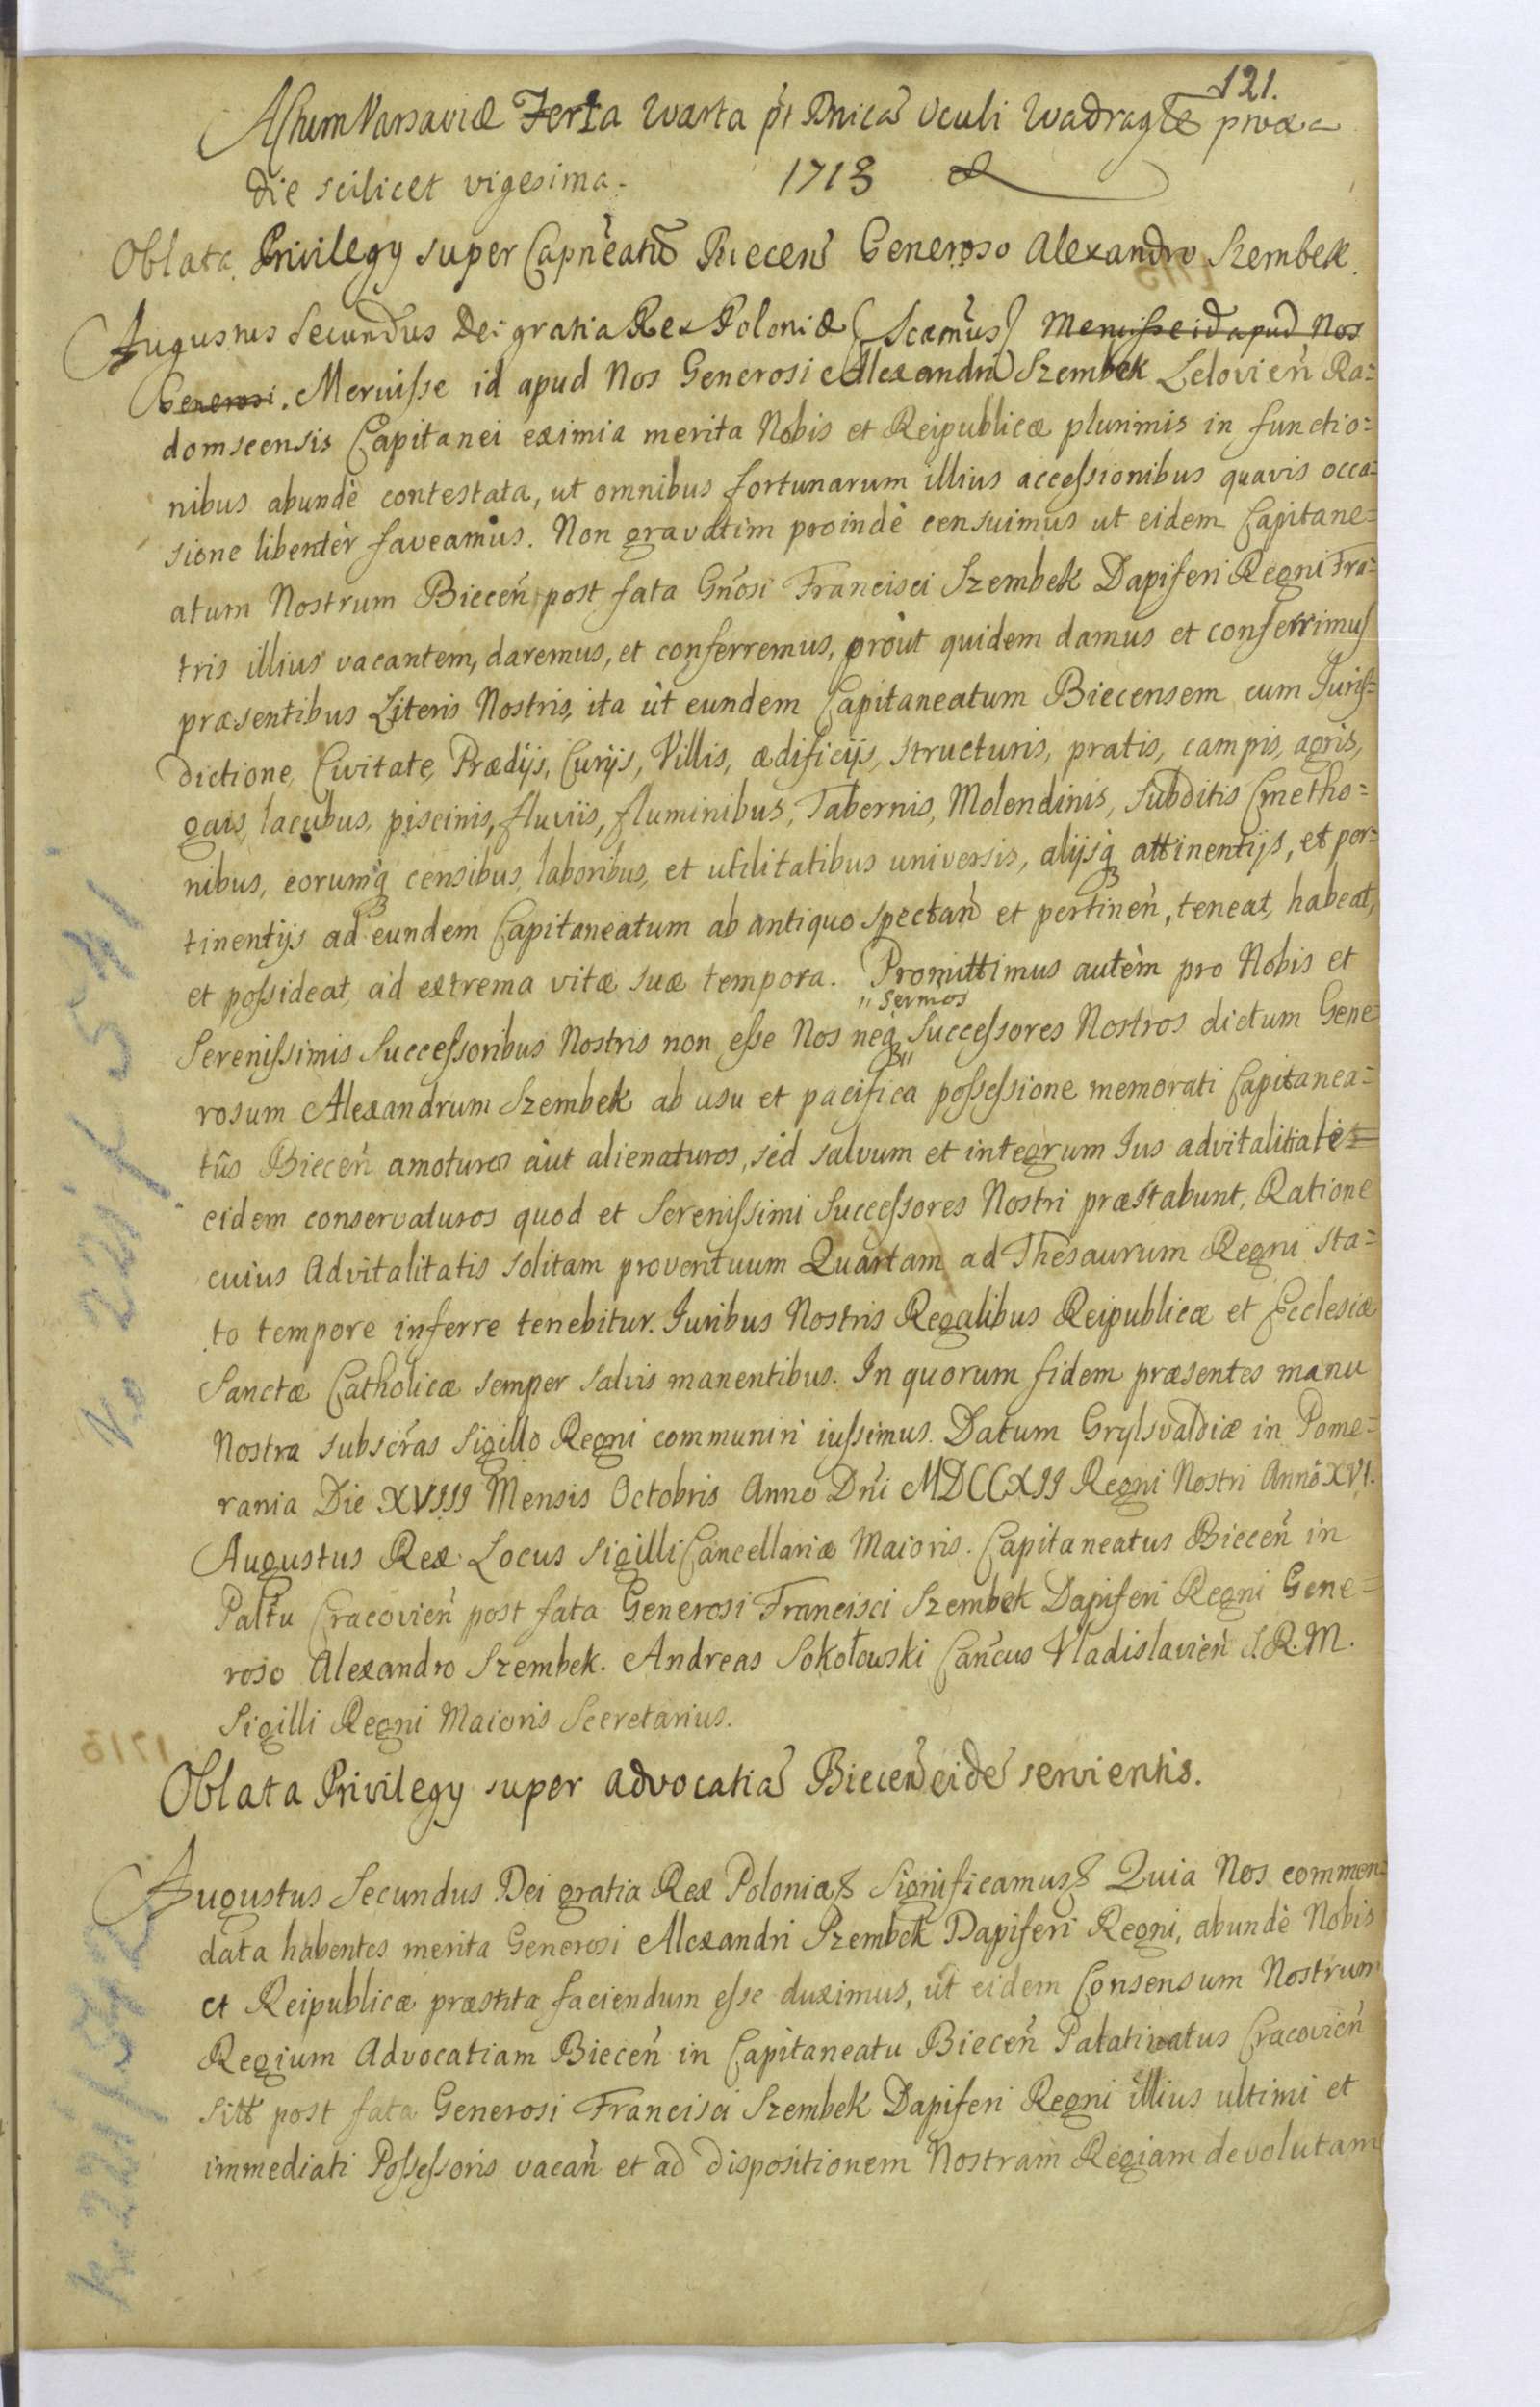 121.
Actum Varsaviæ Feria Quarta pt Dnicã Oculi Quadragle prox̃a
die scilicet vigesima. 1713
Oblata Privilegy super Capneatũ Biecen̄ Generoso Alexandro Szembek.
Augustus Secundus Dei gratia Rex Poloniæ Scamus Meruisse id apud Nos
Generosi. Meruisse id apud Nos Generosi Alexandri Szembek Lelovien̄ Ra=
domscensis Capitanei eximia merita Nobis et Reipublicæ plurimis in functio=
nibus abundè contestata, ut omnibus fortunarum illius accessionibus quavis occa=
sione libentèr faveamus. Non gravatim proindè censuimus ut eidem Capitane=
atum Nostrum Biecen̄ post fata Gn̄osi Francisci Szembek Dapiferi Regni Fra=
tris illius vacantem, daremus, et conferremus, proùt quidem damus et conferrimus
præsentibus Literis Nostris, ita ùt eundem Capitaneatum Biecensem cum Juris=
dictione, Civitate, Prædijs, Curijs, Villis, ædificijs, structuris, pratis, campis, agris,
gais, lacubus, piscinis, fluviis, fluminibus, Tabernis, Molendinis, Subditis Cmetho=
nibus, eorumq́ censibus, laboribus, et utilitatibus universis, alijsq́ attinentijs, et per=
tinentijs ad eundem Capitaneatum ab antiquo spectan̄ et pertinen̄, teneat, habeat,
et possideat, ad extrema vitæ suæ tempora. Promittimus autèm pro Nobis et
Sermos
Serenissimis Successoribus Nostris non esse Nos neq́ Successores Nostros dictum Gene=
rosum Alexandrum Szembek ab usu et pacifica possessione memorati Capitanea=
tûs Biecen̄ amoturos aùt alienaturos, sed salvum et integrum Jus advitalitatis
eidem conservaturos quod et Serenissimi Successores Nostri præstabunt, Ratione
cuius Advitalitatis solitam proventuum Quartam ad Thesaurum Regni sta=
to tempore inferre tenebitur. Juribus Nostris Regalibus Reipublicæ et Ecclesiæ
Sanctæ Catholicæ semper salvis manentibus. In quorum fidem præsentes manu
Nostra subscr̄as Sigillo Regni communiri iussimus. Datum Grylsvaldiæ in Pome=
rania Die XVIII Mensis Octobris Anno Dn̄i MDCCXII Regni Nostri Anno XVI.
Augustus Rex. Locus Sigilli Cancellariæ Maioris. Capitaneatus Biecen̄ in
Paltu Cracovien̄ post fata Generosi Francisci Szembek Dapiferi Regni Gene=
roso Alexandro Szembek. Andreas Sokołowski Cancus Vladislavien̄ S. R. M.
Sigilli Regni Maioris Secretarius.
Oblata Privilegy super advocatiã Biecen̄ eidẽ servientis.
Augustus Secundus Dei gratia Rex Poloniæ Significamus Quia Nos commen=
data habentes merita Generosi Alexandri Szembek Dapiferi Regni, abundè Nobis
et Reipublicæ præstita faciendum esse duximus, ùt eidem Consensum Nostrum
Regium Advocatiam Biecen̄ in Capitaneatu Biecen̄ Palatinatus Cracovien̄
sitt post fata Generosi Francisci Szembek Dapiferi Regni illius ultimi et
immediati Possessoris vacan̄ et ad dispositionem Nostram Regiam devolutam
No 22i f. 541
No 22i f. 542